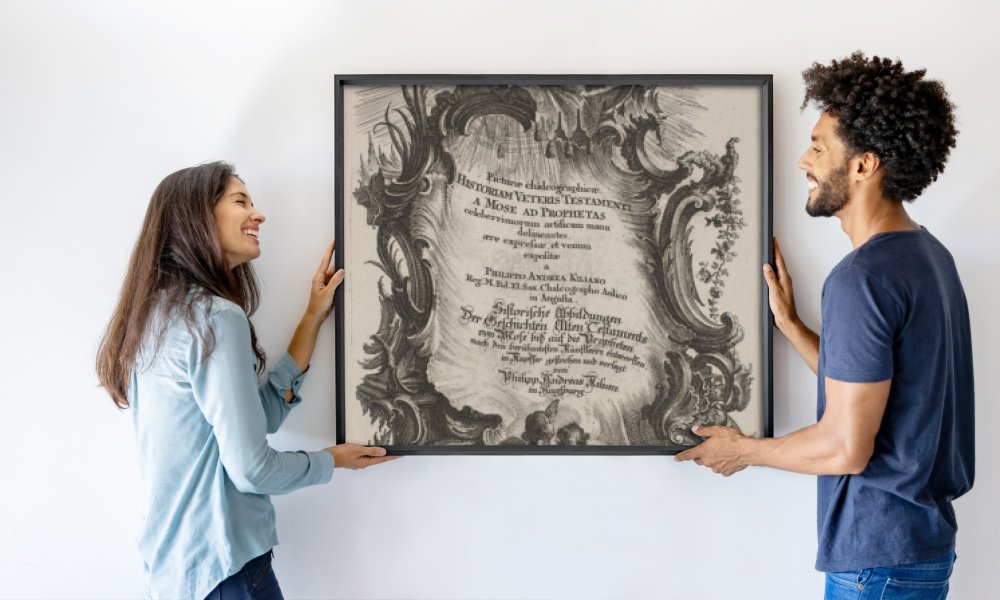 Picturæ chalcographicæ
HISTORIAM VETERIS TESTAMENTI
A MOSE AD PROPHETAS
celeberrimorum artificum manu
delineatæ,
ære expressæ et venum
expositæ
a
PHILIPPO ANDREA KILIANO
Reg. M. Pol. El. Sax. Chalcographo Aulico
in Augusta.
Historische Abbildungen
Der Geschichten Alten Testaments
von Mose biß auf die Propheten
nach den berühmtesten Künstlern entworffen,
in Kupffer gestochen und verlegt
von
Philipp Andreas Kilian
in Augspurg